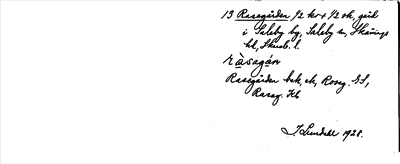 13 Rasegården 1/2 kr + 1/2 sk, gård
i Saleby by, Saleby sn, Skånings
hd, Skarab. l.
ràsagán
Rasegården bsk, ek, Rosag. GS,
Rasag. Hb
J. Lundahl 1928.